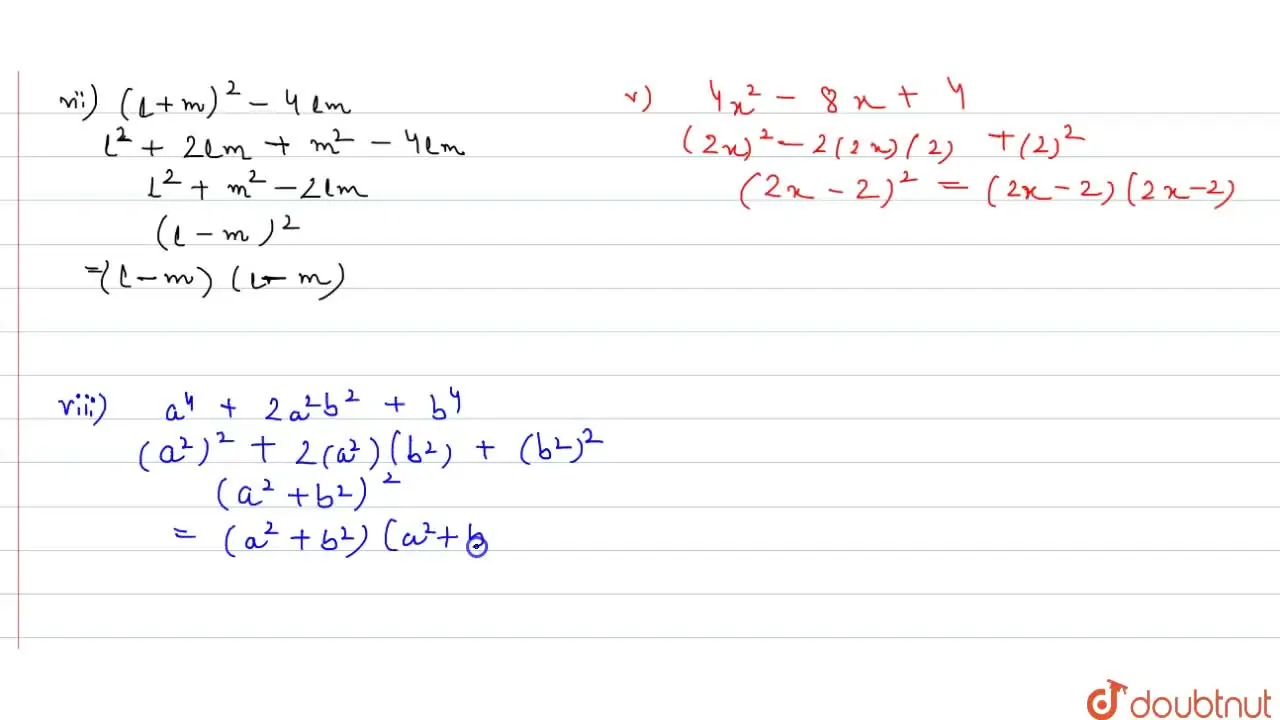 vii) (l+m)² - 4lm
l² + 2lm + m² - 4lm
l² + m² - 2lm
(l - m)²
=(l - m) (l - m)
v) 4x² - 8x + 4
(2x)² - 2(2x)(2) + (2)²
(2x - 2)² = (2x - 2)(2x - 2)
viii) a⁴ + 2a²b² + b⁴
(a²)² + 2(a²)(b²) + (b²)²
(a² + b²)²
= (a² + b²) (a² + b
doubtnut